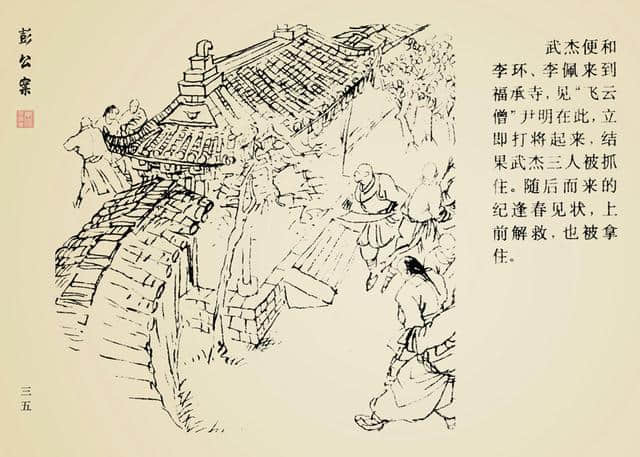 彭公案
武杰便和
李环、李佩来到
福承寺，见“飞云
僧”尹明在此，立
即打将起来，结
果武杰三人被抓
住。随后而来的
纪逢春见状，上
前解救，也被拿
住。
三五